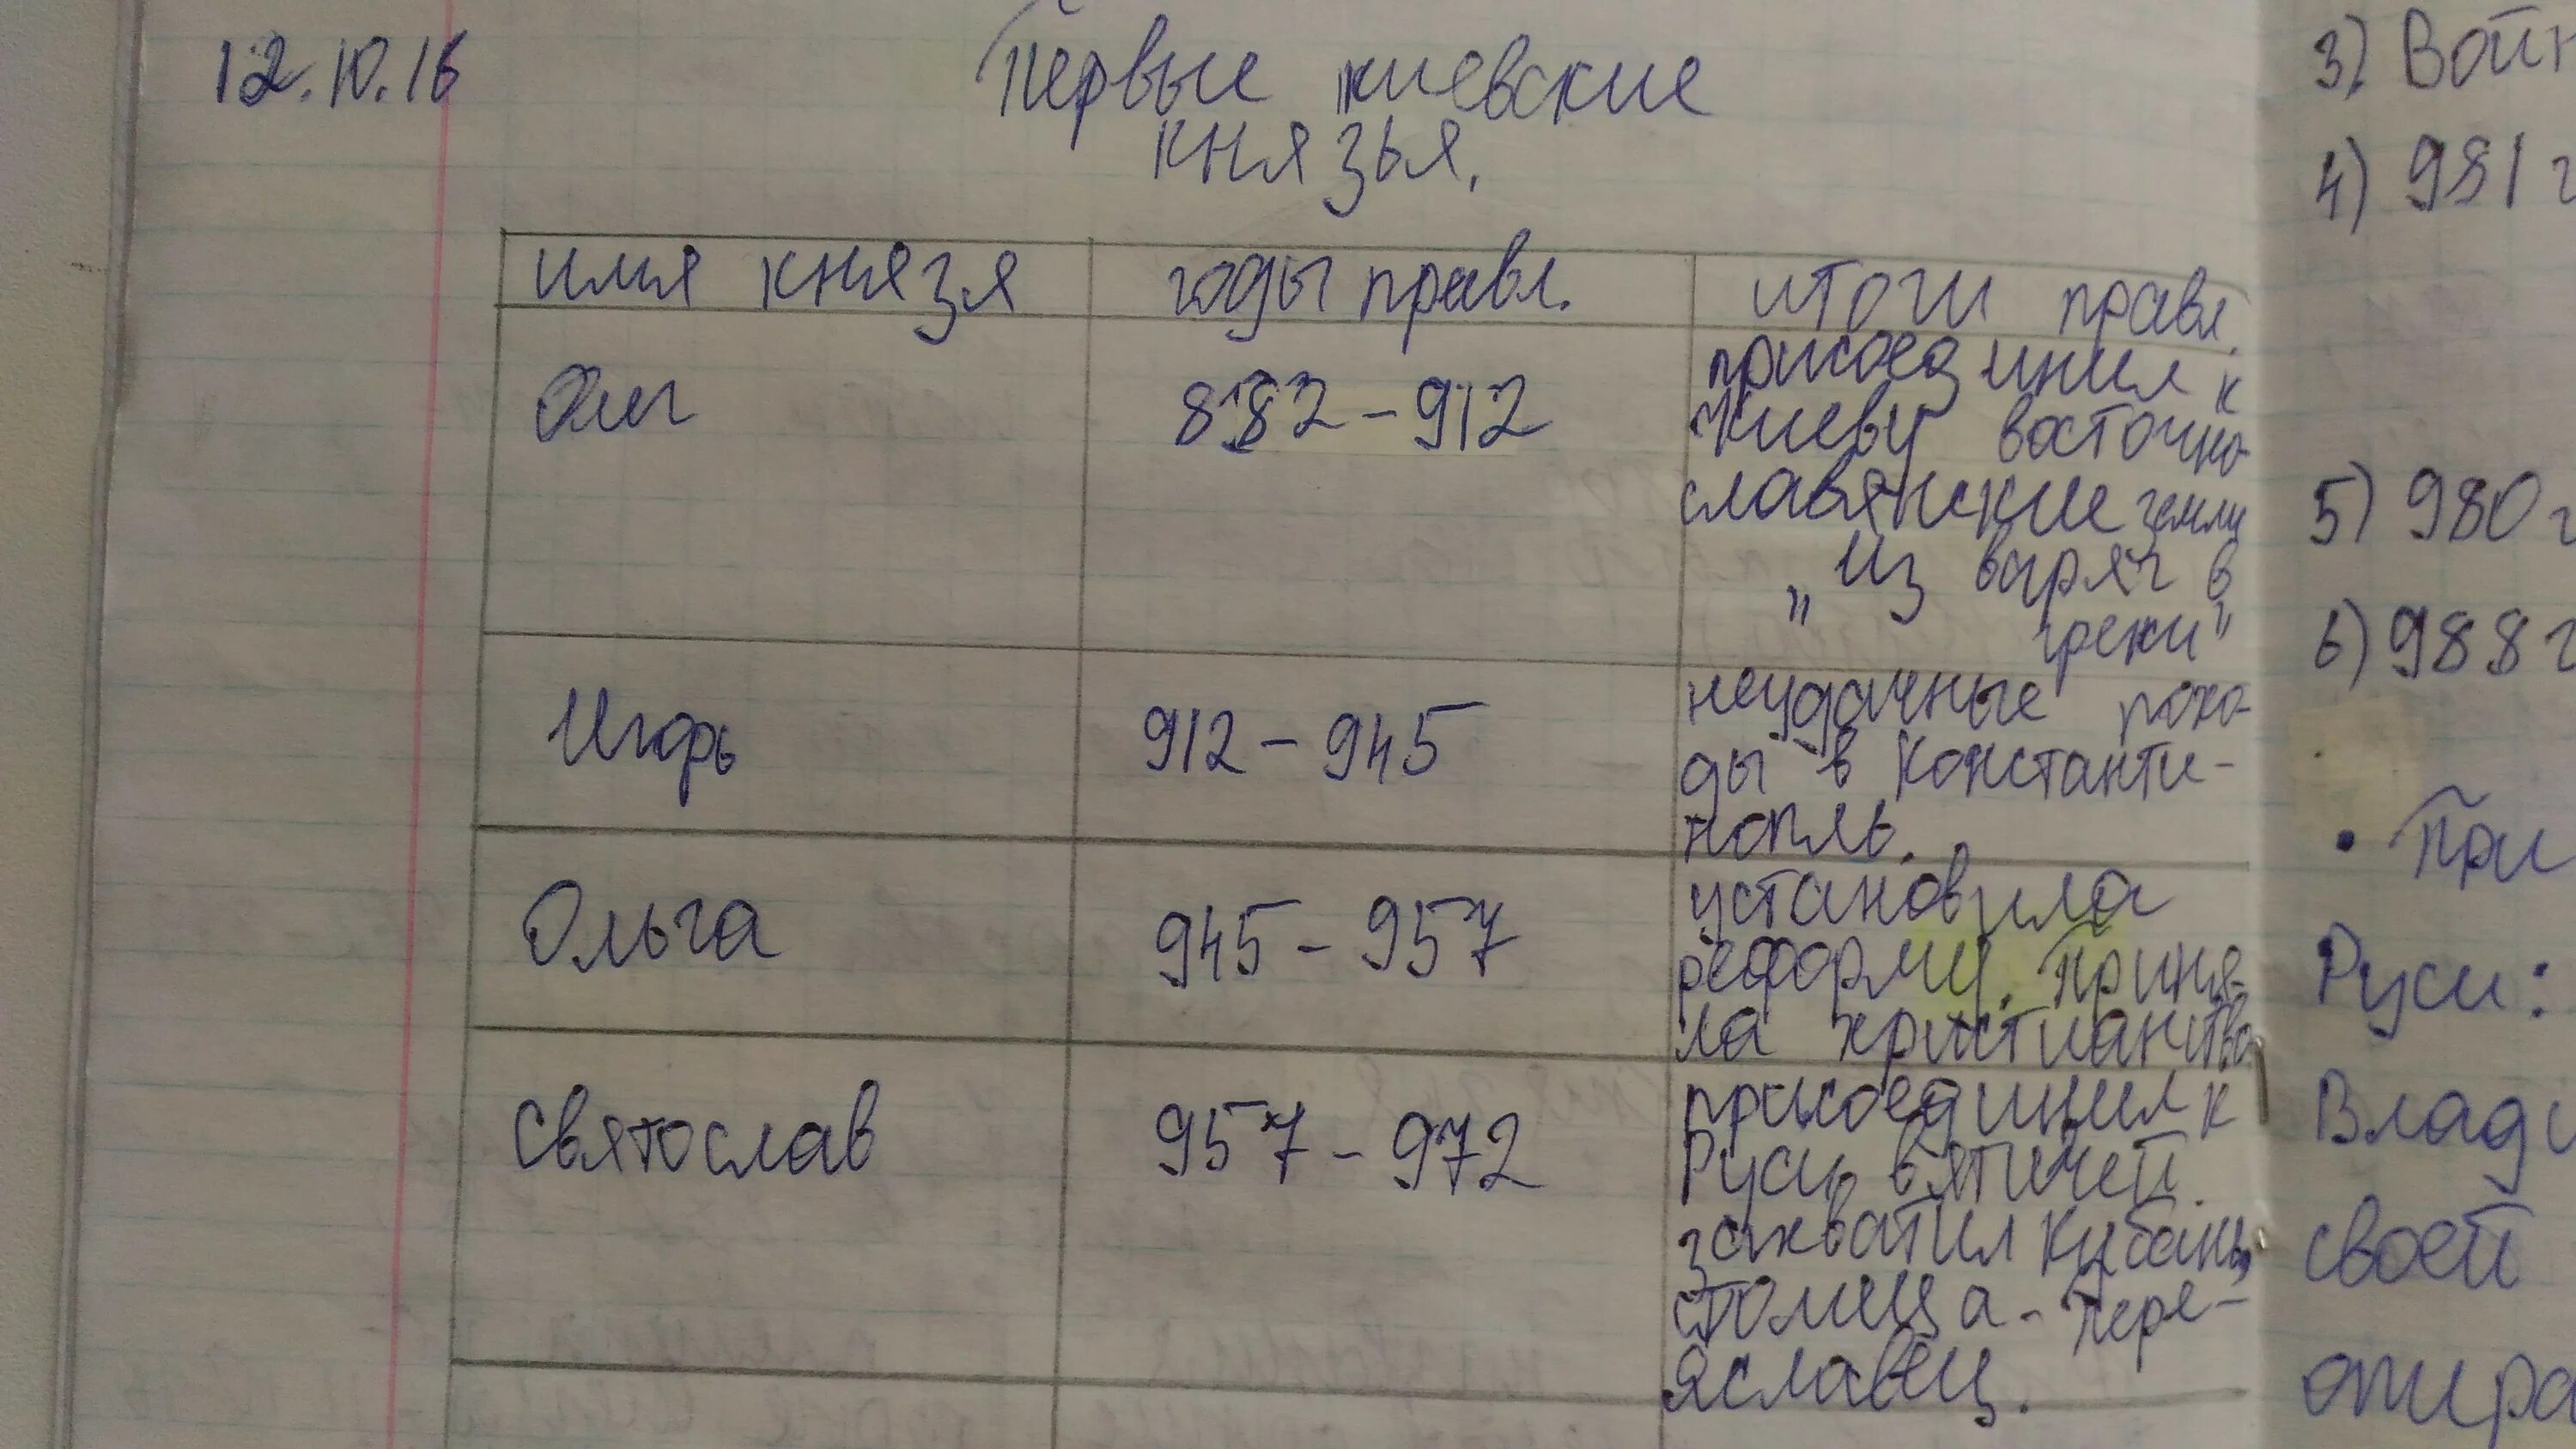 12.10.16
Первые киевские
князья.
имя князя
годы правл.
итоги правл.
Олег
882 - 912
присоединил к
Киеву восточно-
славянские земли
"из варяг в
греки"
Игорь
912 - 945
неудачные похо-
ды в Константи-
нополь.
Ольга
945 - 957
установила
реформу. Приня-
ла христианство
Святослав
957 - 972
присоединил к
Руси вятичей.
захватил Кубань,
столица - Пере-
яславец.
3) Войн
4) 981 г
5) 980 г
6) 988 г
• При
Руси:
Влади
своей
опира